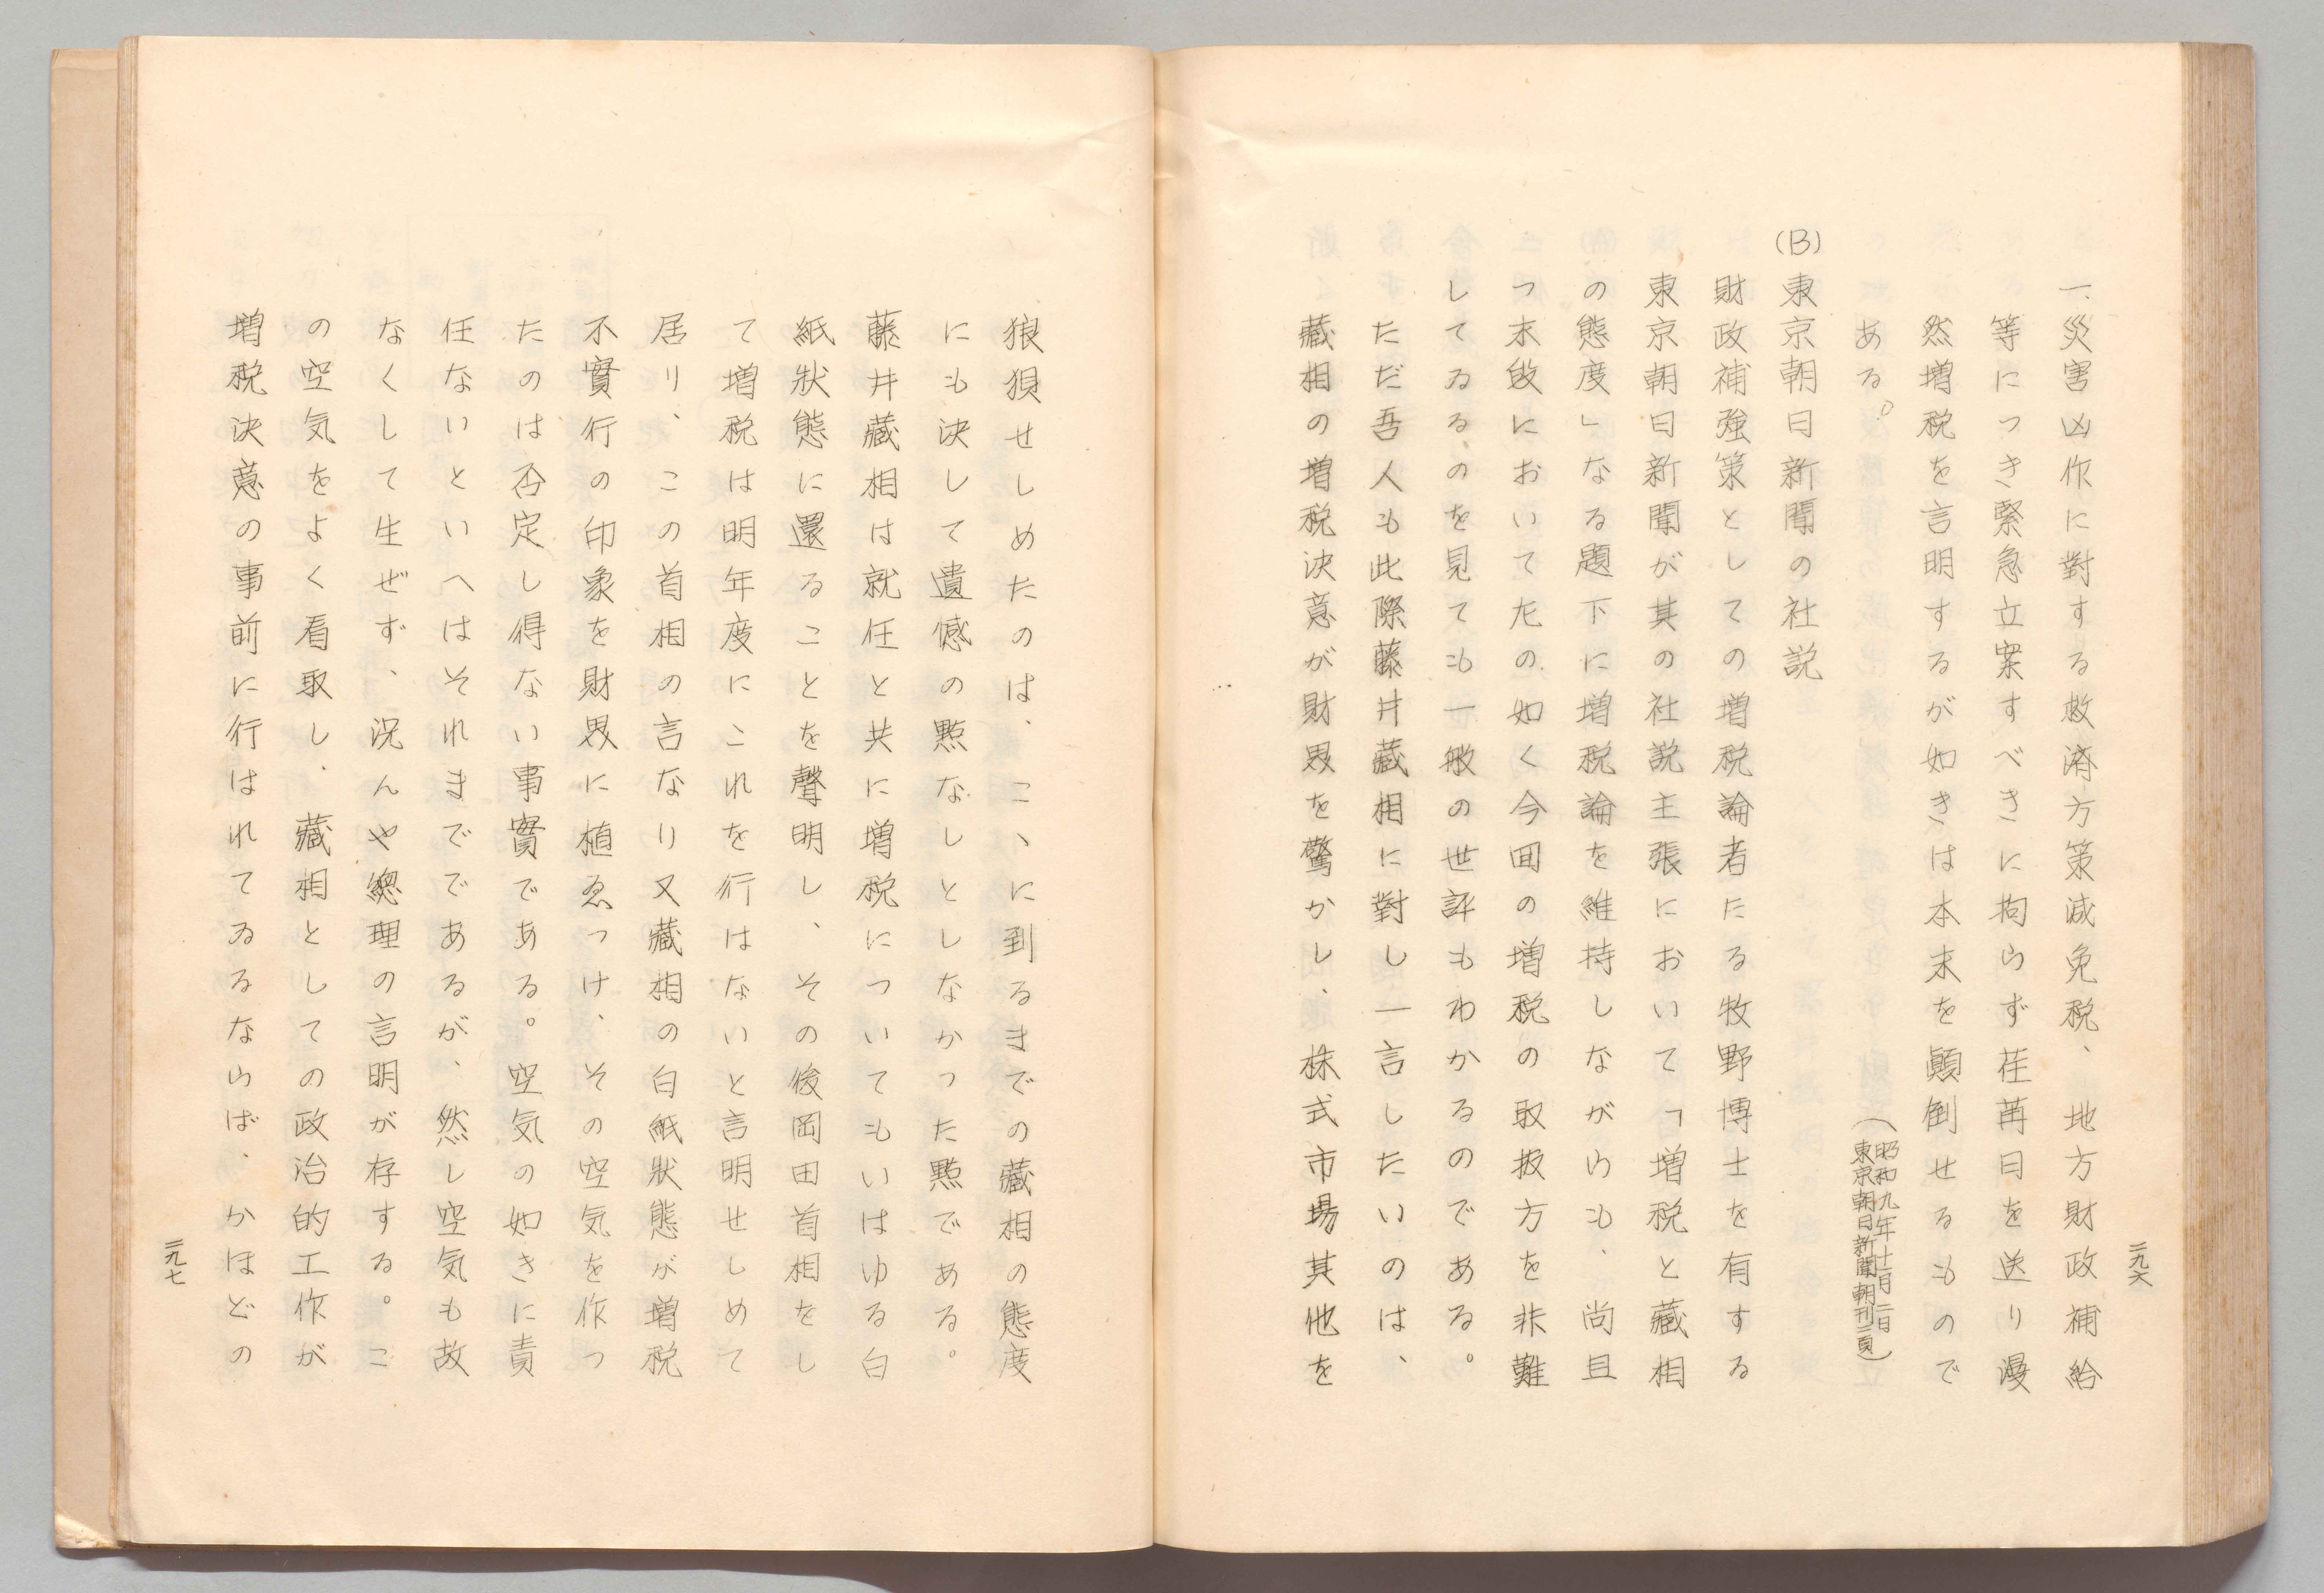 二九六
一、災害凶作に對する救済方策減免税、地方財政補給
等につき緊急立案すべきに拘らず荏苒日を送り漫
然増税を言明するが如きは本末を顚倒せるもので
ある。
(昭和九年十一月二日
東京朝日新聞朝刊二頁)
(B)東京朝日新聞の社説
財政補強策としての増税論者にる牧野博士を有する
東京朝日新聞が其の社説主張において「増税と藏相
の態度」なる題下に増税論を維持しながらも、尚且
つ末段において左の如く今回の増税の取扱方を非難
してゐる、のを見ても一般の世評もわかるのである。
ただ吾人も此際藤井藏相に對し一言したいのは、
藏相の増税決意が財界を驚かし、株式市場其他を
狼狽せしめたのは、こゝに到るまでの藏相の態度
にも決して遺憾の黙なしとしなかった黙である。
藤井藏相は就任と共に増税についてもいはゆる白
紙狀態に還ることを聲明し、その後岡田首相をし
て増税は明年度にこれを行はないと言明せしめて
居り、この首相の言なり又藏相の白紙狀態が増税
不實行の印象を財界に植ゑつけ、その空気を作つ
たのは否定し得ない事實である。空気の如きに責
任ないといへはそれまでであるが、然し空気も故
なくして生ぜず、況んや總理の言明が存する。こ
の空気をよく看取し、藏相としての政治的工作が
増税決意の事前に行はれてゐるならば、かほどの
二九七